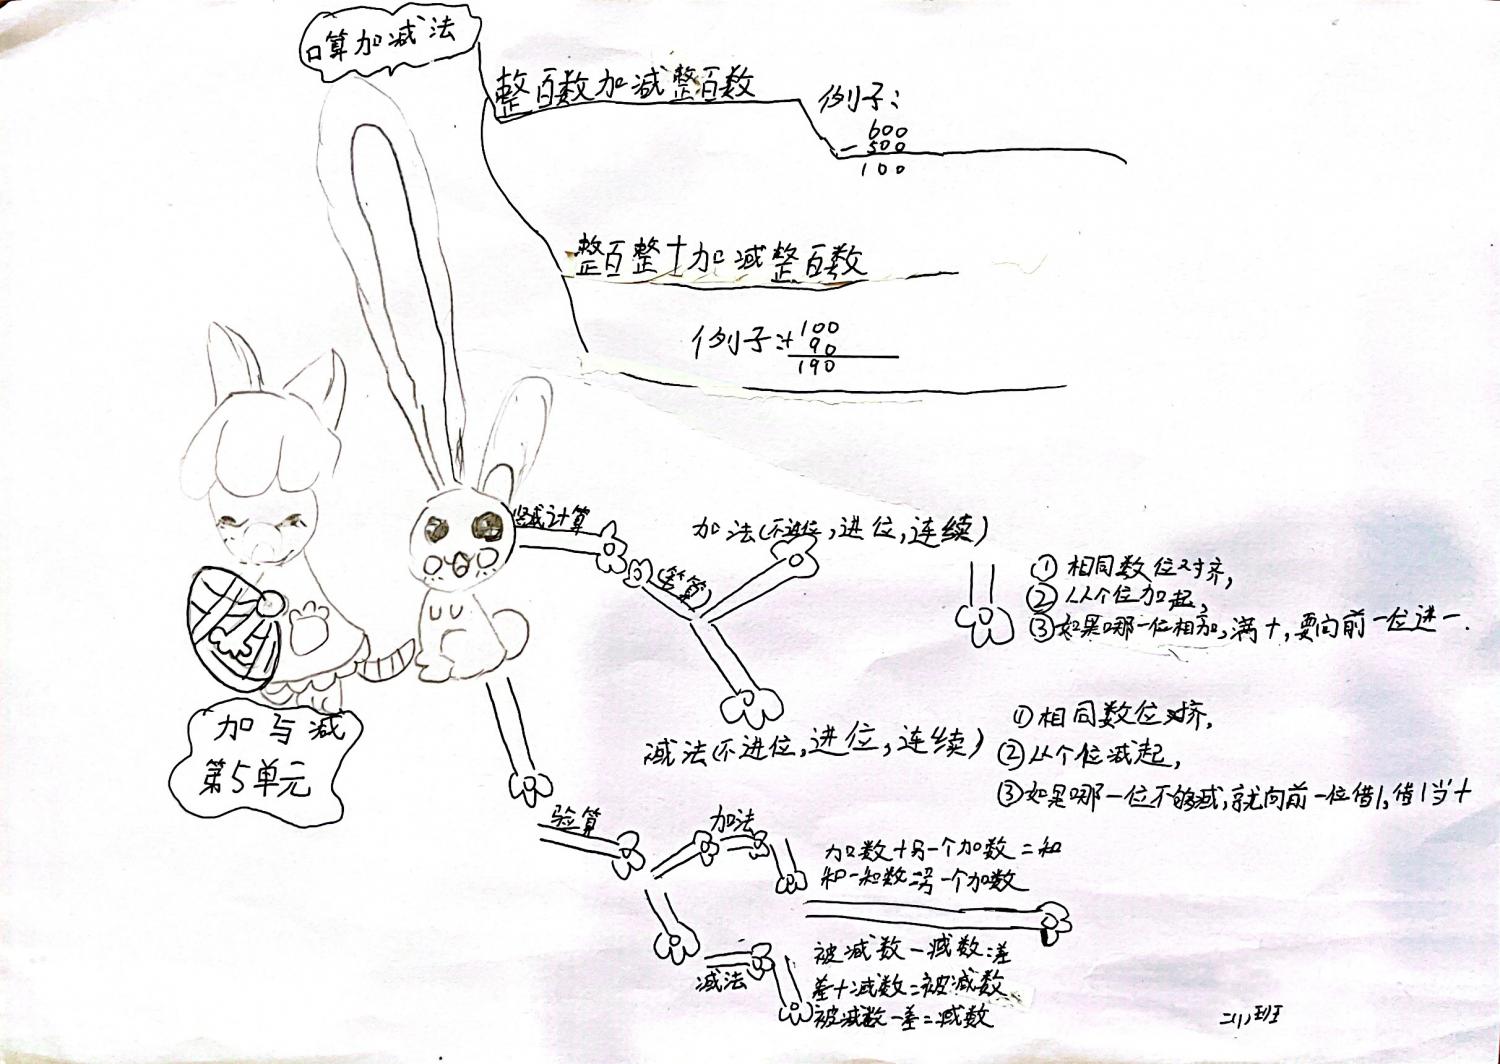 口算加减法
整百数加减整百数
例子:
600
- 500
100
整百整十加减整百数
例子:
100
+ 90
190
竖式计算
笔算
加法(不进位,进位,连续)
①相同数位对齐,
②从个位加起,
③如果哪一位相加,满十,要向前一位进一.
减法(不进位,进位,连续)
①相同数位对挤,
②从个位减起,
③如果哪一位不够减,就向前一位借1,借1当十
验算
加法
加数+另一个加数=和
和-知数=另一个加数
减法
被减数-减数=差
差+减数=被减数
被减数-差=减数
加与减
第5单元
二(1)班